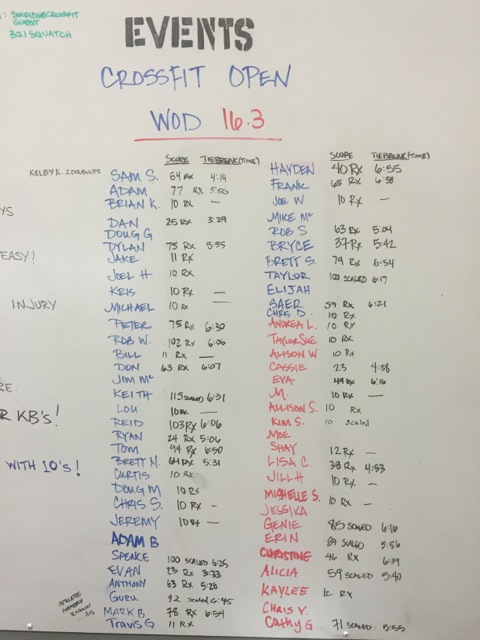 GUEST
321 SQUATCH
EVENTS
CROSSFIT OPEN
WOD 16.3
SCORE TIEBREAK(TIME)
SAM S. 64 RX 4:14
ADAM 77 RX 5:50
BRIAN K. 10 RX —
DAN 25 RX 3:29
DOUG G
DYLAN 75 RX 5:55
JAKE 11 RX
JOEL H 10 RX
KRIS 10 RX —
MICHAEL 10 RX
PETER 75 RX 6:30
ROB W. 102 RX 6:06
BILL 11 RX —
DON 63 RX 6:07
JIM Mc
KEITH 115 SCALED 6:31
LOU 10 RX —
REID 103 RX 6:06
RYAN 24 RX 5:06
TOM 94 RX 6:50
BRETT N. 64 RX 5:31
CURTIS 10 RX
DOUG M 10 RX
CHRIS S. 10 RX —
JEREMY 10 RX —
ADAM B
SPENCE 100 SCALED 6:25
EVAN 23 RX 3:33
ANTHONY 63 RX 5:28
GURU 92 SCALED 6:45
MARK B 78 RX 6:54
TRAVIS G 11 RX
SCORE TIEBREAK(TIME)
HAYDEN 40 RX 6:55
FRANK 65 RX 6:58
JOE W 10 RX —
MIKE Mc
ROB S 63 RX 5:04
BRYCE 37 RX 5:42
BRETT S. 79 RX 6:54
TAYLOR 100 SCALED 6:17
ELIJAH
SAER 59 RX 6:21
CHRIS D. 10 RX
ANDREA L. 10 RX
TAYLOR SUE 10 RX
ALISON W 10 RX
CASSIE 23 4:38
EVA 49 RX 6:16
M. 10 RX —
ALLISON S. 10 RX
KIM S. 10 SCALED
MOE
SHAY 12 RX —
LISA C. 38 RX 4:53
JILL H 10 RX —
MICHELLE S. 10 RX —
JESSIKA
GENIE 85 SCALED 6:16
ERIN 89 SCALED 5:56
CHRISTINE 46 RX 6:39
ALICIA 59 SCALED 5:40
KAYLEE 12 RX
CHRIS V.
CATHY G 71 SCALED 5:55
KELBY K.
YS
EASY!
INJURY
RE.
OR KB'S!
WITH 10'S!
ATHLETE
KNOWN
AS